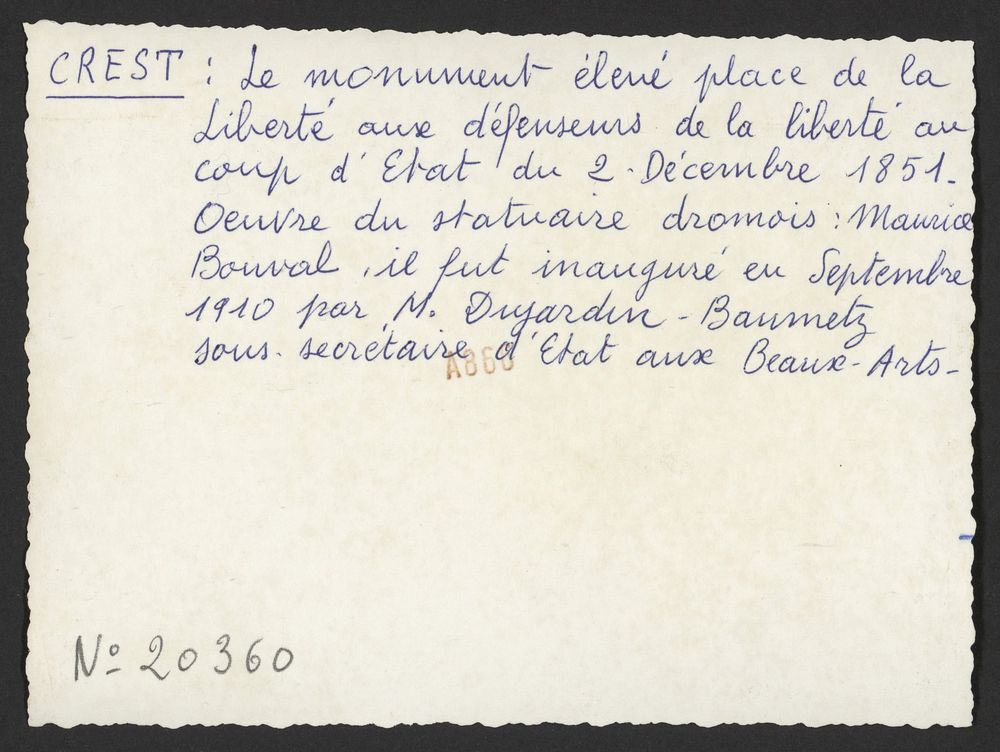 CREST : Le monument élevé place de la
Liberté aux défenseurs de la liberté au
coup d'Etat du 2-Décembre 1851.
Oeuvre du statuaire dromois : Maurice
Bouval, il fut inauguré en Septembre
1910 par M. Dujardin-Baumetz
sous-secrétaire d'Etat aux Beaux-Arts-
A866
N° 20360